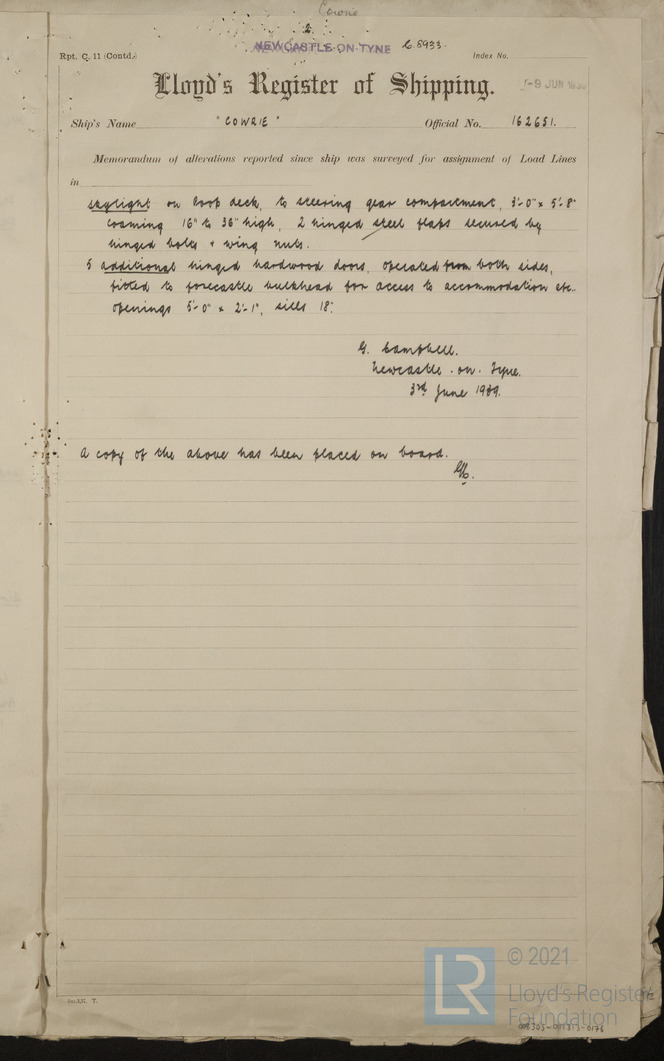 Cowrie
2.
NEWCASTLE-ON-TYNE C.8933.
Rpt. C. 11 (Contd.) Index No.
Lloyd's Register of Shipping.
-9 JUN
Ship's Name "COWRIE" Official No. 162651.
Memorandum of alterations reported since ship was surveyed for assignment of Load Lines
in
skylight on poop deck, to steering gear compartment, 3'-0" x 5'-8"
coaming 16" to 36" high, 2 hinged steel flaps secured by
hinged bolts + wing nuts.
5 additional hinged hardwood doors, operated from both sides,
fitted to forecastle bulkhead for access to accommodation etc..
openings 5'-0" x 2'-1", sills 18".
G. Campbell.
Newcastle-on-Tyne.
3rd June 1939.
A copy of the above has been placed on board.
T.
LR
© 2021
Lloyd's Register
Foundation